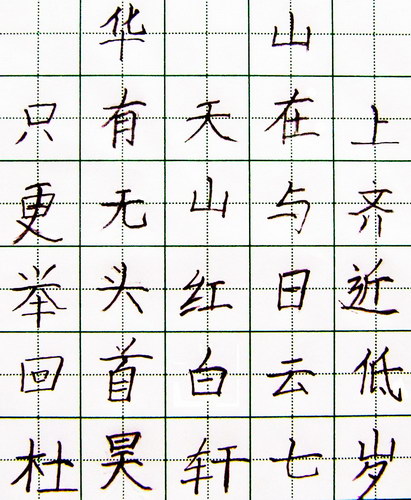 华山
只有天在上
更无山与齐
举头红日近
回首白云低
杜昊轩七岁